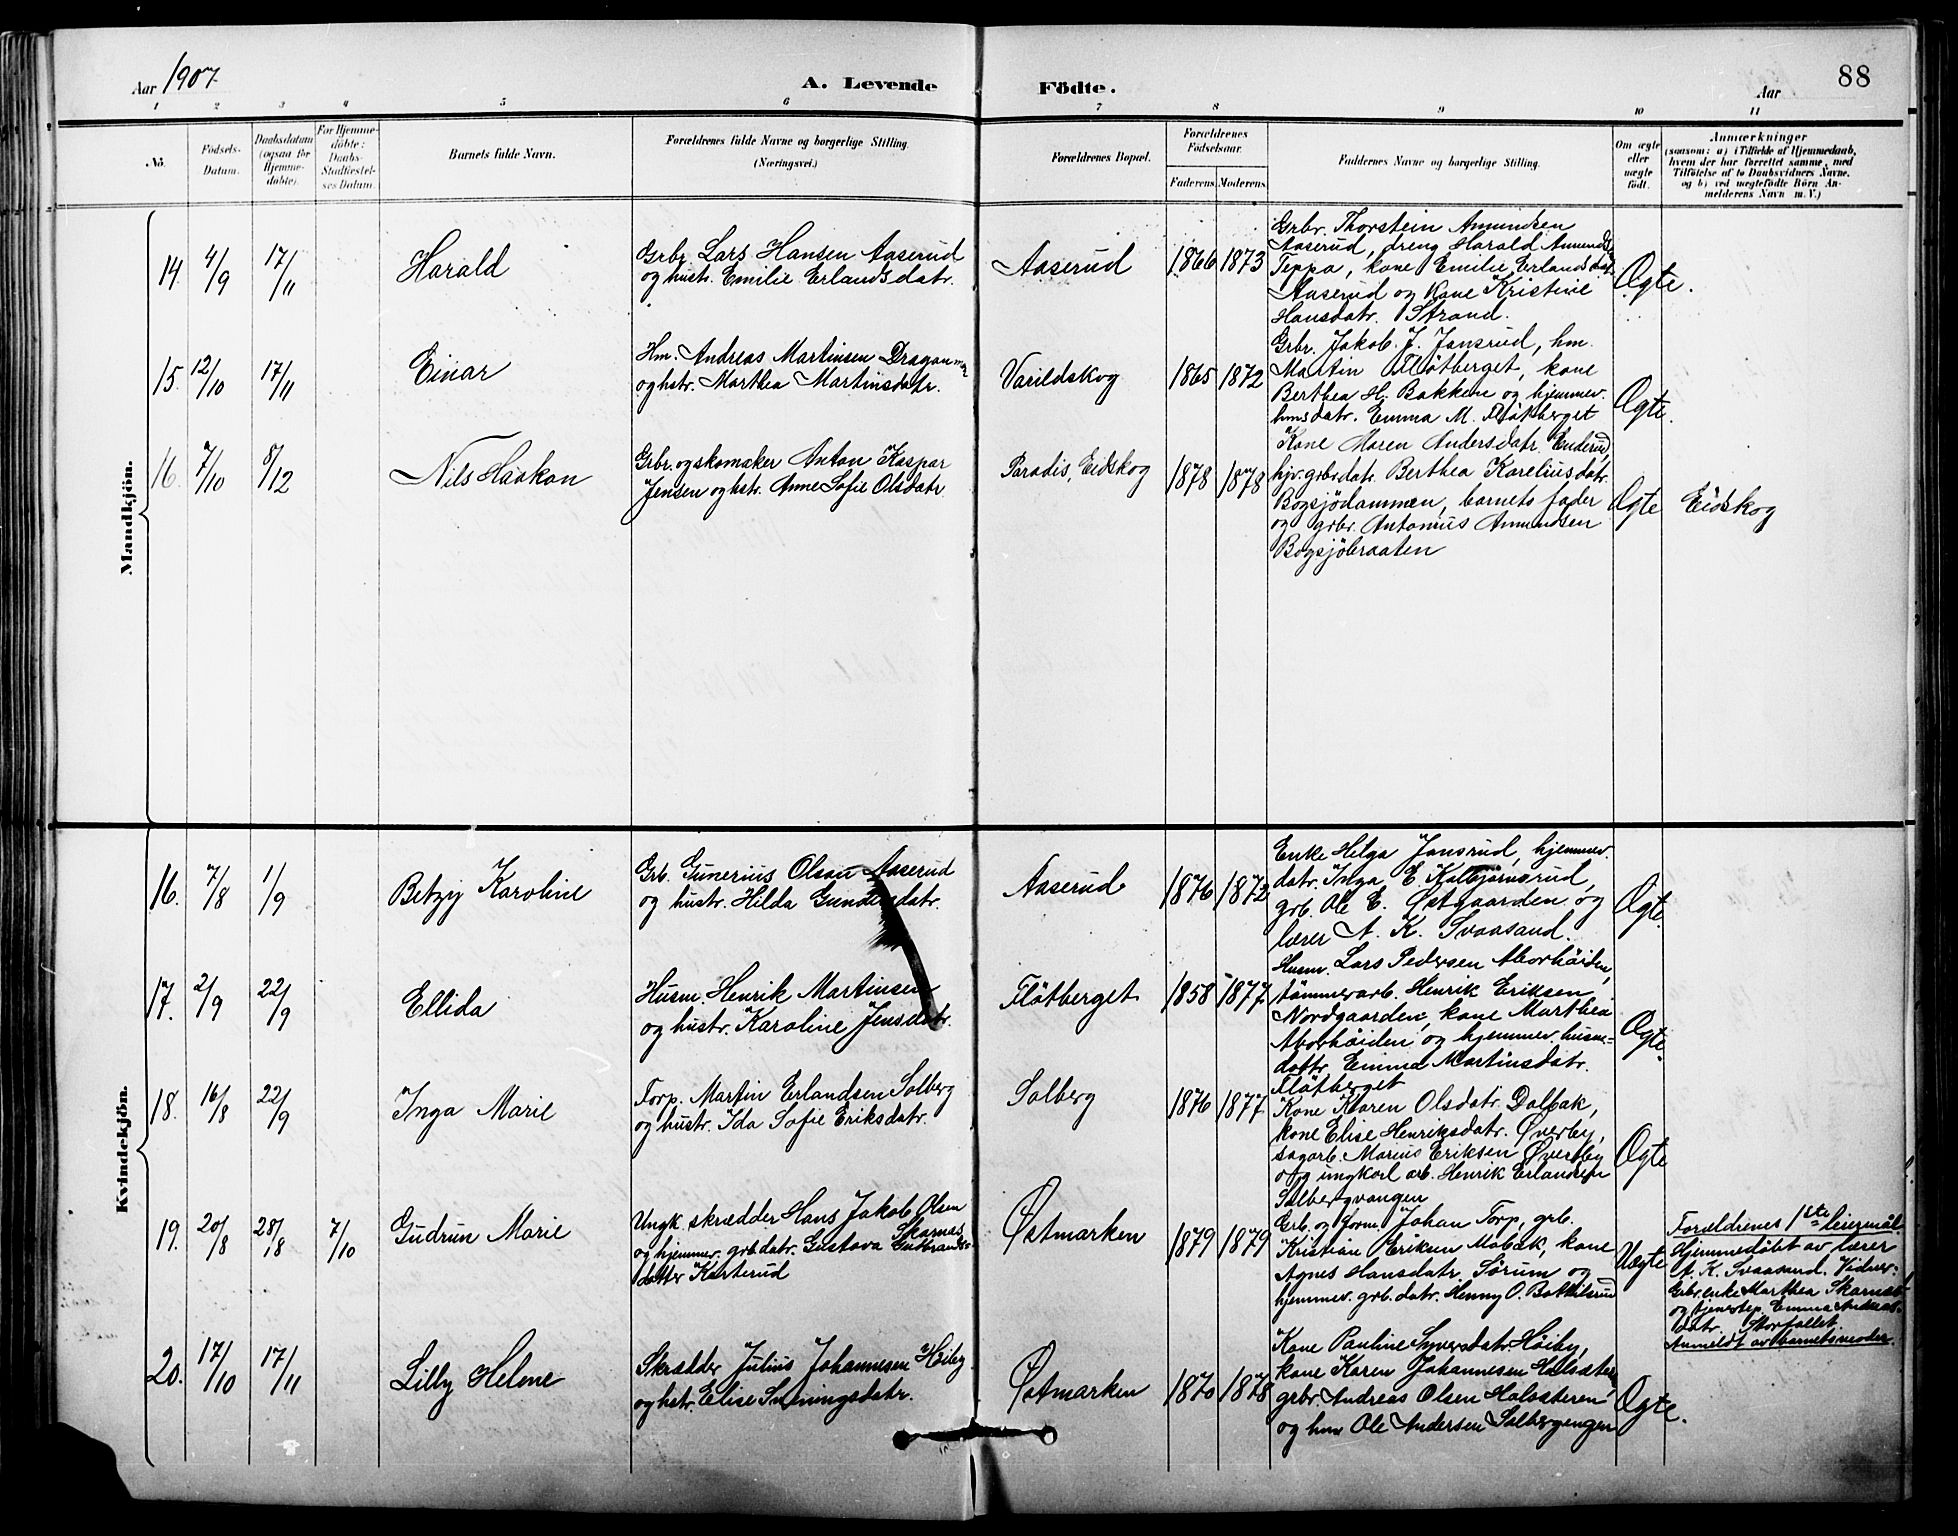 Aar 1907
A. Levende Födte.
Aar
88
1 2 3 4 5 6 7 8 9 10 11
No.
Födsels-
Datum.
Daabsdatum
(ogsaa for
Hjemme-
döbte).
For Hjemme-
döbte:
Daabs-
Stadfæstel-
ses Datum.
Barnets fulde Navn.
Forældrenes fulde Navne og borgerlige Stilling.
(Næringsvei.)
Forældrenes Bopæl.
Forældrenes
Födselsaar.
Faderens
Moderens
Faddernes Navne og borgerlige Stilling.
Om ægte
eller
uægte
født.
Anmærkninger
(saasom: a) i Tilfælde af Hjemmedaab,
hvem der har forrettet samme, med
Tilföielse af to Daabsvidners Navne,
og b) ved uægtefödte Börn An-
melderens Navn m. V.)
Mandkjön.
14. 4/9 17/11
Harald
Grbr. Lars Hansen Aaserud
og hustr. Emilie Erlandsdatr.
Aaserud
1866 1873
Grbr. Thorstein Amundsen
Aaserud, dreng Harald Amunds.
Teppa, kone Emilie Erlandsdatr
Aaserud og Kone Kristine
Hansdatr. Strand.
Ægte.
15. 12/10 17/11
Einar
Hm. Andreas Martinsen
og hstr. Marthea Martinsdatr.
Varildskog
1865 1872
Grbr. Jakob. J. Jansrud, hm.
Martin Fløtberget, kone
Berthea H. Bakken og hjemmev.
hmsdatr. Emma M. Fløtberget
Ægte.
16. 7/10 8/12
Nils Haakon
Grbr. og skomaker Anton Kaspar
Jensen og hstr. Anne Sofie Olsdatr
Paradis, Eidskog
1878 1878
Kone Maren Andersdatr. Enderud,
hjv. grbrdatr. Berthea Kareliusdatr.
Bogsjödammen, barnets fader
og grbr. Antonius Amundsen
Bogsjöbraaten
Ægte
Eidskog
Kvindekjön.
16. 7/8 1/9
Betzy Karoline
Grb. Gunerius Olsen Aaserud
og hustr. Hilda Gundersdatr.
Aaserud
1876 1872
Enke Helga Jansrud, hjemmev.
datr. Inga E Kolbjørnsrud,
grb. Ole E. Østgaarden og
lærer A. K. Svaasand.
Ægte.
17. 2/9 22/9
Ellida
Husm. Henrik Martinsen
og hustr. Karoline Jensdatr.
Fløtberget
1858 1877
Husm. Lars Pedersen Aborhöiden,
tømmerarb. Henrik Eriksen
Nordgaarden, kone Marthea
Aborhöiden og hjemmev. husm-
dattr. Emma Martinsdatr.
Fløtberget
Ægte.
18. 16/8 22/9
Inga Marie
Torp. Martin Erlandsen Solberg
og hustr. Ida Sofie Eriksdatr.
Solberg
1876 1877
Kone Karen Olsdatr. Dalbak,
kone Elise Henriksdatr. Øverby,
sagarb. Marius Eriksen Øverby
og ungkarl arb. Henrik Erlandsen
Solbergvangen
Ægte
19. 20/8 28/8 7/10
Gudrun Marie
Ungk. skrædder Hans Jakob Olsen
Skarnas
og hjemmev. grb. datr. Gustava Gulbrands-
datter Karterud
Østmarken
1879 1879
Grb. og form. Johan Torp, grb.
Kristian Eriksen Mobæk, kone
Agnes Hansdatr. Sørum og
hjemmev. grb. datr. Henny O. Bottilsrud
Uægte
Forældrenes 1ste leiermål
Hjemmedøbt av lærer
A. K. Svaasand. Vidner:
Grbr.enke Marthea Skarnas
og tjenestep. Emma Andreas-
datr. Storfallet.
Anmeldt av barnets moder.
20. 17/10 17/11
Lilly Helene
Skrædder Julius Johannesen Höiby
og hstr. Elise Sveningsdatr.
Østmarken
1870 1878
Kone Pauline Syversdatr Höiby,
kone Karen Johannesen
grbr. Andreas Olsen Holosteren
og hm Ole Andersen Solbergengen
Ægte.